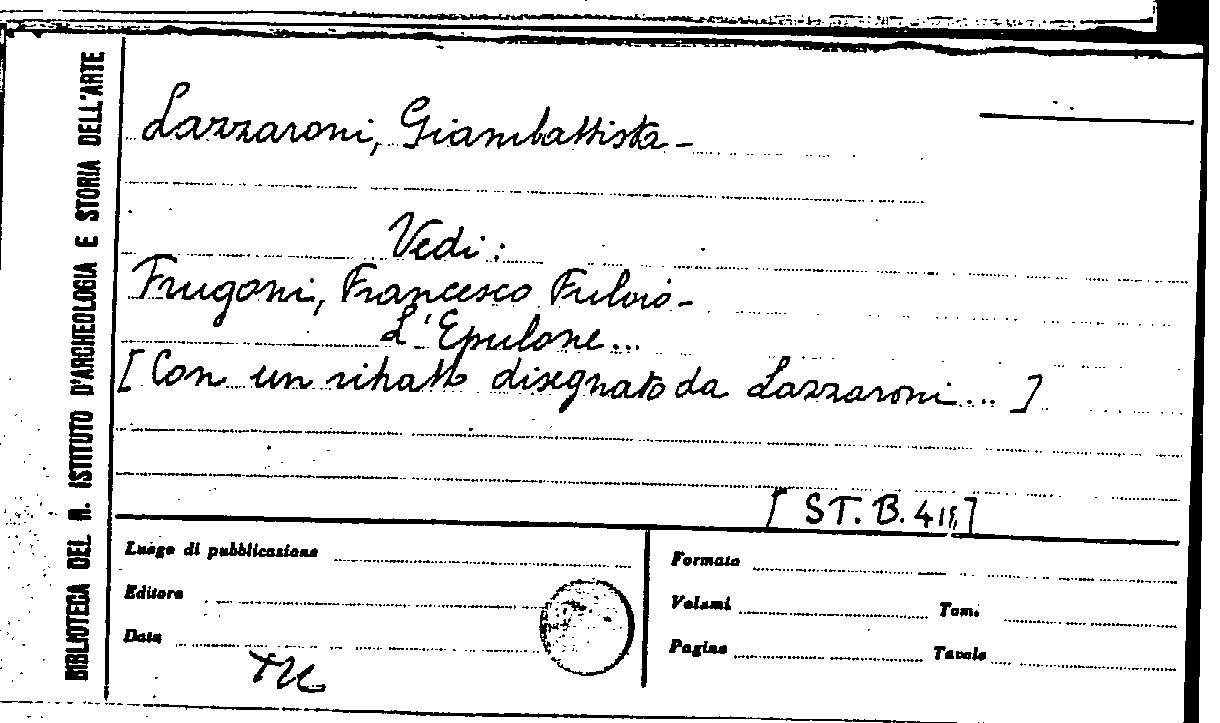 BIBLIOTECA DEL R. ISTITUTO D'ARCHEOLOGIA E STORIA DELL'ARTE
Lazzaroni, Giambattista -
Vedi :
Frugoni, Francesco Fulvio -
L'Epulone...
[Con un ritratto disegnato da Lazzaroni... ]
[ ST. B. 
Luogo di pubblicazione
Editore
Data
Formato
Volumi Tomi
Pagine Tavole